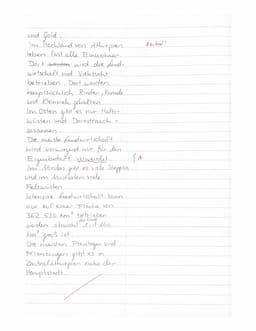 und Gold.
Im Hochland von Äthiopien
leben fast alle Einwohner.
Dort wird die Land-
wirtschaft und Viehzucht
betrieben. Dort werden
hauptsächlich Rinder, Hunde
und Kleinvieh gehalten.
Im Osten gibt es nur Halb-
wüsten und Dornstrauch-
savannen.
Die meiste Landwirtschaft
wird vorwiegend nur für den
Eigenbedarf verwendet. A
Im Süden gibt es viele Steppen
und im Nordosten viele
Felswüsten
Intensive Landwirtschaft kann
nur auf einer Fläche von
km² betrieben
werden obwohl
km² groß ist.
Die meisten Plantagen und
Pflanzungen gibt es in
Zentraläthiopien nahe der
Hauptstadt.